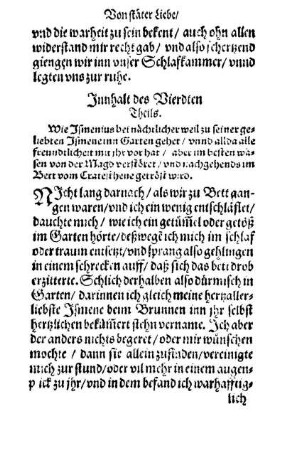 Von stäter Liebe/
vnd die warheit zu sein bekent / auch ohn allen
widerstand mir recht gab / vnd also schertzend
giengen wir inn vnser Schlafkammer / vnnd
legten vns zur ruhe.
Innhalt des Vierdten
Theils.
Wie Ismenius bei nächtlicher weil zu seiner ge-
liebten Ismene inn Garten gehet / vnnd allda alle
freundtlichen mit jhr vor hat / aber im besten wä-
sen von der Magd verstört / vnd nachgehends im
Bett vom Cratesthene getröst wird.
NIcht lang darnach / als wir zu Bett gan-
gen waren / vnd ich ein wenig entschläffet /
dauchte mich / wie ich ein getümel oder getöß
im Garten hörte / deßwegē ich mich im schlaf
oder traum entsetzt / vnd sprang also gehlingen
in einem schrecken auff / daß sich das bett drob
erzitterte. Schlich derhalben also dürmisch in
Garten / darinnen ich gleich meine hertzaller-
liebste Ismene beim Brunnen inn jhr selbst
hertzlichen bekümert stehn vername. Ich aber
der anders nichts begeret / oder mir wünschen
mochte / dann sie allein zufinden / vereinigte
mich zur stund / oder vil mehr in einem augen-
plick zu jhr / vnd in dem befand ich warhafftig-
lich